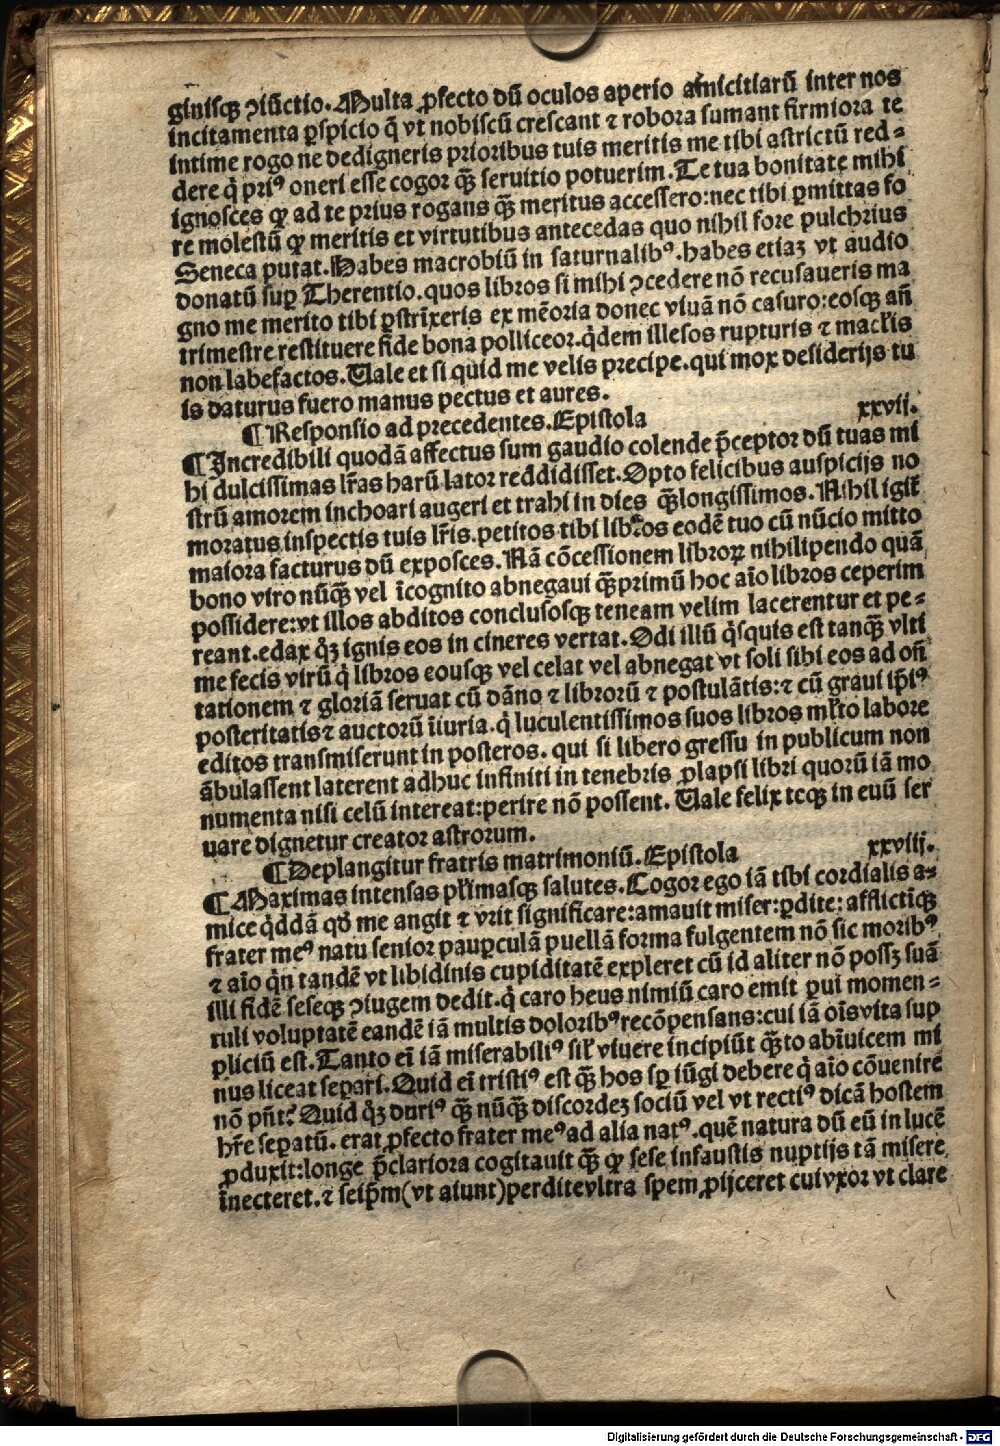 giniſqꝫ ꝯiūctio. Multa ꝓfecto dū oculos aperio amicitiarū inter nos
incitamenta ꝑſpicio q̄ vt nobiſcū creſcant ⁊ robora ſumant firmiora te
intime rogo ne dedigneris prioribus tuis meritis me tibi aſtrictū red⸗
dere q̇ priꝰ oneri eſſe cogor qꝫ̄ ſeruitio potuerim. Te tua bonitate mihi
ignoſces ꝙ ad te prius rogans qꝫ̄ meritus acceſſero: nec tibi ꝑmittas fo
re moleſtū ꝙ meritis et virtutibus antecedas quo nihil fore pulchrius
Seneca putat. Habes macrobiū in ſaturnalibꝰ. habes etiaꝫ vt audio
donatū ſuꝑ Therentio. quos libros ſi mihi ꝯcedere nō recuſaueris ma
gno me merito tibi ꝑſtrīxeris ex mēoria donec viuā nō caſuro: eoſqꝫ añ
trimeſtre reſtituere fide bona polliceor. q̇dem illeſos rupturis ⁊ macl̓is
non labefactos. Uale et ſi quid me velis precipe. qui mox deſiderijs tu
is daturus fuero manus pectus et aures.
¶ Reſponſio ad precedentes. Epiſtola xxvij.
¶ Incredibili quodā affectus ſum gaudio colende p̄ceptor dū tuas mi
hi dulciſſimas lr̄as harū lator reddidiſſet. Opto felicibus auſpicijs no
ſtrū amorem inchoari augeri et trahi in dies qꝫ̄longiſſimos. Nihil igit̄
moratus inſpectis tuis lr̄is. petitos tibi libros eodē tuo cū nūcio mitto
maiora facturus dū expoſces. Nā cōceſſionem libroꝝ nihilipendo quā
bono viro nūqꝫ̄ vel īcognito abnegaui qꝫ̄primū hoc aīo libros ceperim
poſſidere: vt illos abditos concluſoſqꝫ teneam velim lacerentur et pe⸗
reant. edax q̇ꝫ ignis eos in cineres vertat. Odi illū q̇ſquis eſt tanqꝫ̄ vlti
me fecis virū q̇ libros eouſqꝫ vel celat vel abnegat vt ſoli ſibi eos ad oſt̄
tationem ⁊ gloriā ſeruat cū dāno ⁊ librorū ⁊ poſtulātis: ⁊ cū graui ip̄iꝰ
poſteritatis ⁊ auctorū īiuria. q̇ luculentiſſimos ſuos libros ml̓to labore
editos tranſmiſerunt in poſteros. qui ſi libero greſſu in publicum non
ābulaſſent laterent adhuc infiniti in tenebris ꝓlapſi libri quorū iā mo
numenta niſi celū intereat: perire nō poſſent. Uale felix teqꝫ in euū ſer
uare dignetur creator aſtrorum.
¶ Deplangitur fratris matrimoniū. Epiſtola xxviij.
¶ Maximas intenſas pl̓imaſqꝫ ſalutes. Cogor ego iā tibi cordialis a⸗
mice q̇ddā qd̓ me angit ⁊ vrit ſignificare: amauit miſer: ꝑdite: afflictīqꝫ
frater meꝰ natu ſenior pauꝑculā puellā forma fulgentem nō ſic moribꝰ
⁊ aīo q̇n tandē vt libidinis cupiditatē expleret cū id aliter nō poſſꝫ ſuā
illi fidē ſeſeqꝫ ꝯiugem dedit. q̇ caro heus nimiū caro emit ꝑui momen⸗
tuli voluptatē eandē iā multis doloribꝰ recōpenſans: cui iā oīs vita ſup
pliciū eſt. Tanto eī iā miſerabiliꝰ ſil̓ viuere incipiūt qꝫ̄to abīuicem mi
nus liceat ſeꝑari. Quid eī triſtiꝰ eſt qꝫ̄ hos ſꝑ iūgi debere q̇ aīo cōuenire
nō pn̄t? Quid q̇ꝫ duriꝰ qꝫ̄ nūqꝫ̄ diſcordeꝫ ſociū vel vt rectiꝰ dicā hoſtem
hr̄e ſeꝑatū. erat ꝓfecto frater meꝰ ad alia natꝰ. quē natura dū eū in lucē
ꝓduxit: longe p̄clariora cogitauit qꝫ̄ ꝙ ſeſe infauſtis nuptijs tā miſere
īnecteret. ⁊ ſeip̄m (vt aiunt) perdite vltra ſpem ꝓijceret cui vxor vt clare
Digitalisierung gefördert durch die Deutsche Forschungsgemeinschaft - DFG